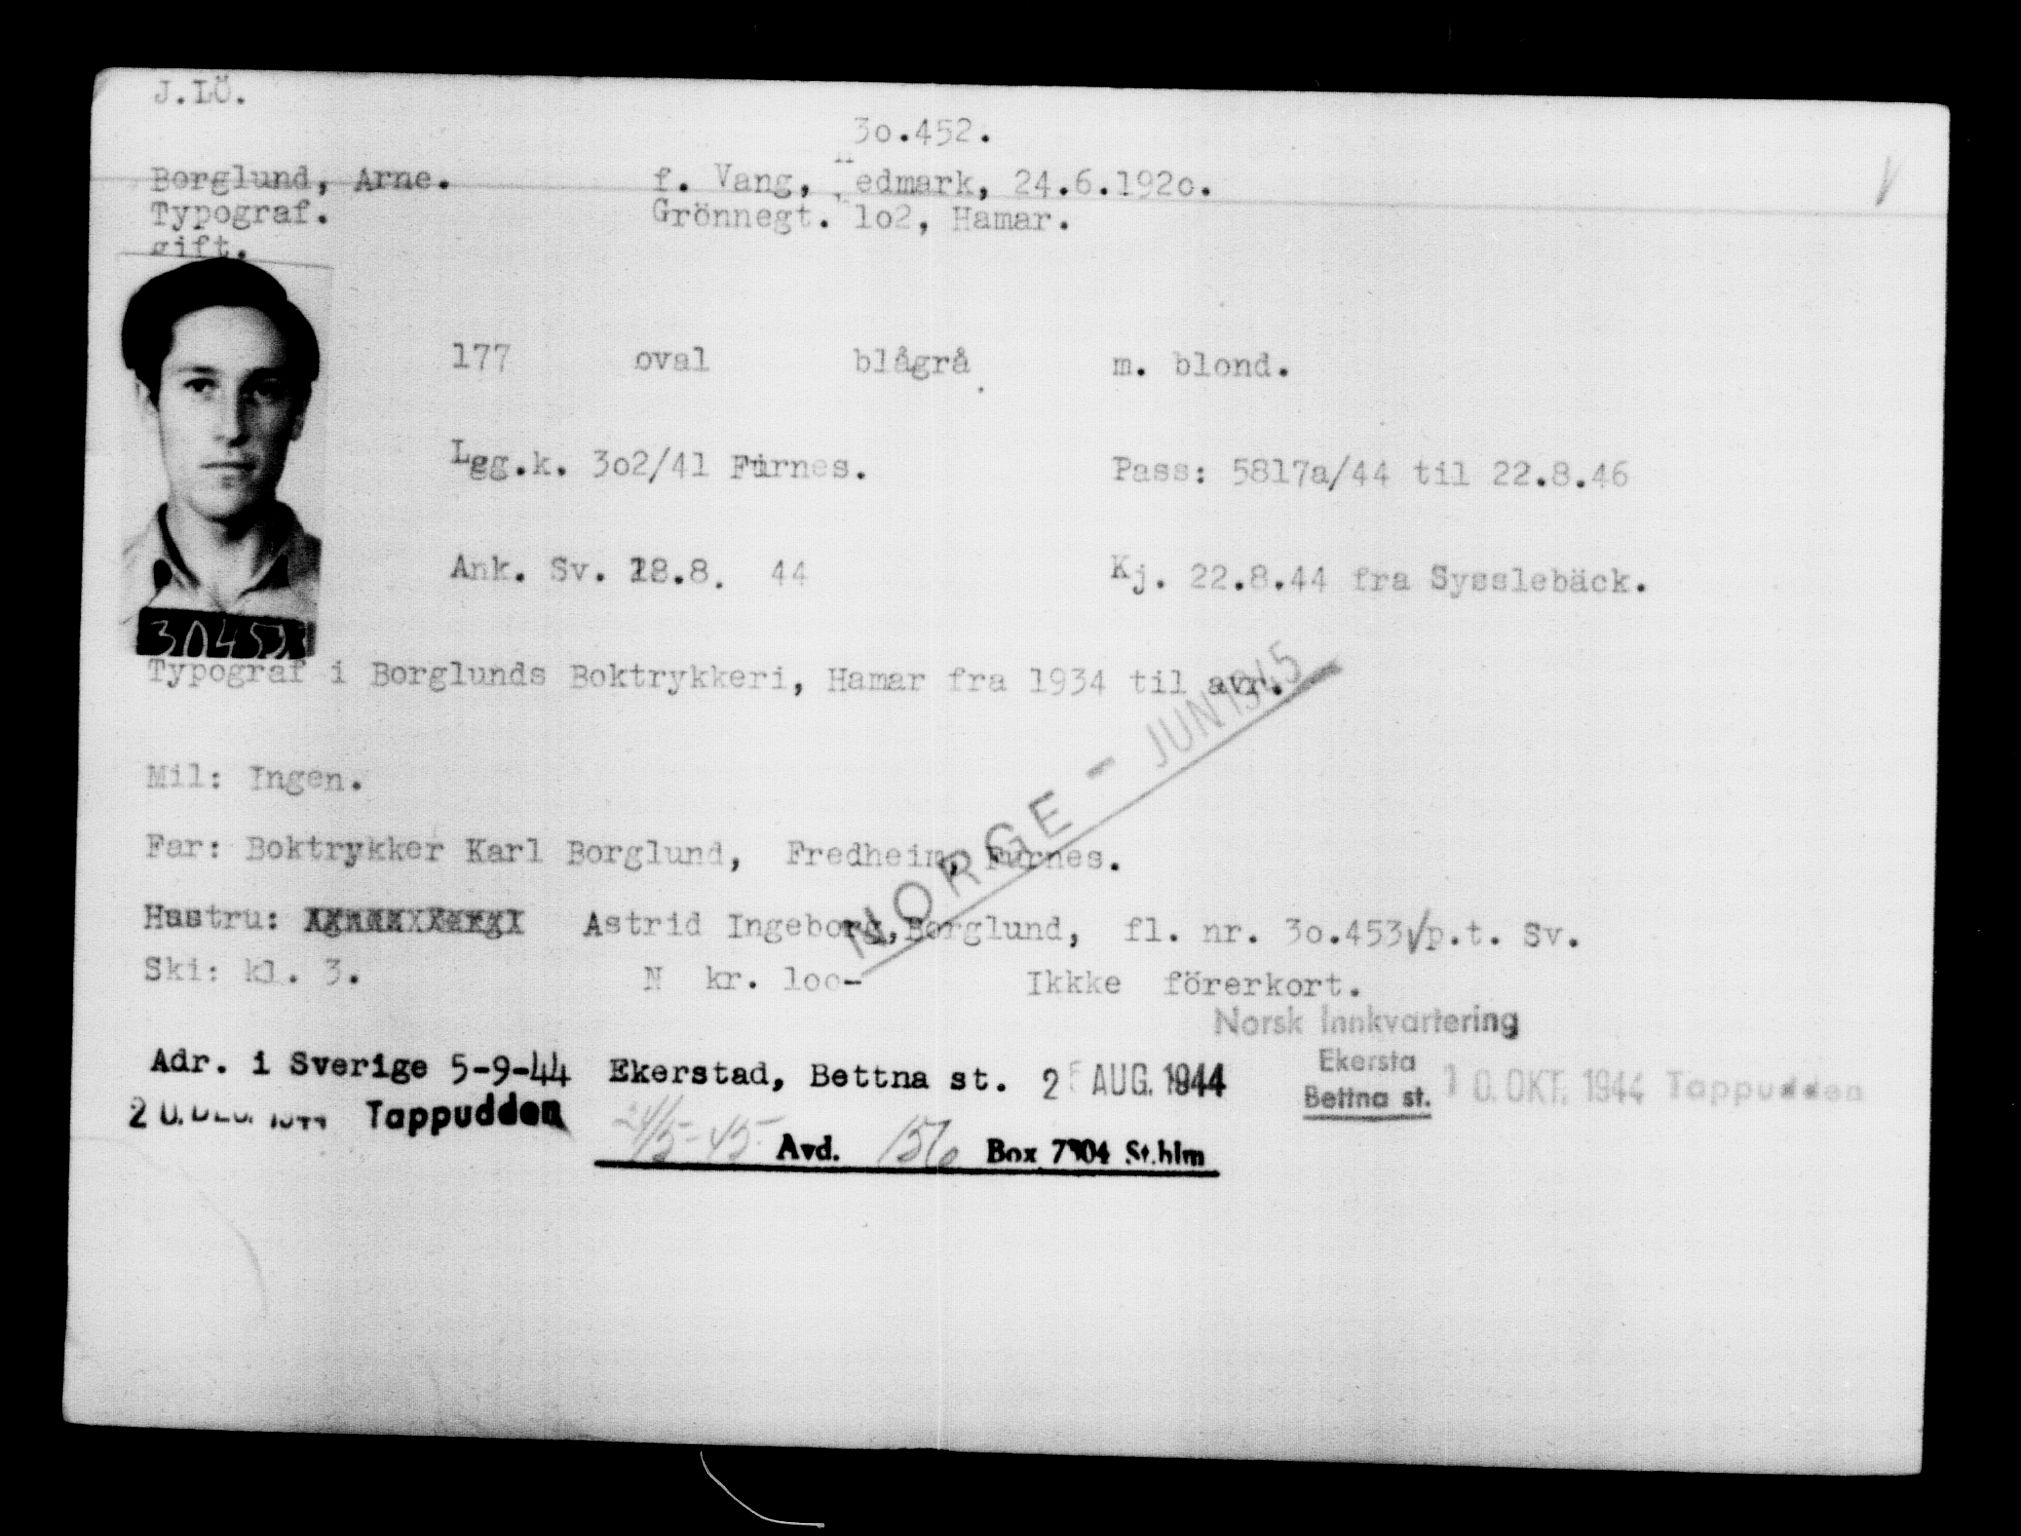 J.LÖ.
3o.452.
Borglund, Arne. f. Vang, Hedmark, 24.6.192o.
Typograf. Grönnegt. lo2, Hamar.
gift.
177 oval blågrå m. blond.
Lgg.k. 3o2/41 Furnes. Pass: 5817a/44 til 22.8.46
Ank. Sv. 18.8. 44 Kj. 22.8.44 fra Sysslebäck.
Typograf i Borglunds Boktrykkeri, Hamar fra 1934 til avr.
NORGE - JUN 1945
Mil: Ingen.
Far: Boktrykker Karl Borglund, Fredheim, Furnes.
Hustru: Astrid Ingeborg, Borglund, fl. nr. 3o.453 p.t. Sv.
Ski: kl. 3. N kr. loo- Ikkke förerkort.
Norsk Innkvartering
Ekersta
Bettna st.
Adr. i Sverige 5-9-44 Ekerstad, Bettna st. AUG. 1944 10. OKT. 1944 Tappudden
20. DEC. 1944 Tappudden
24/5-45 Avd. 156 Box 7904 St.hlm